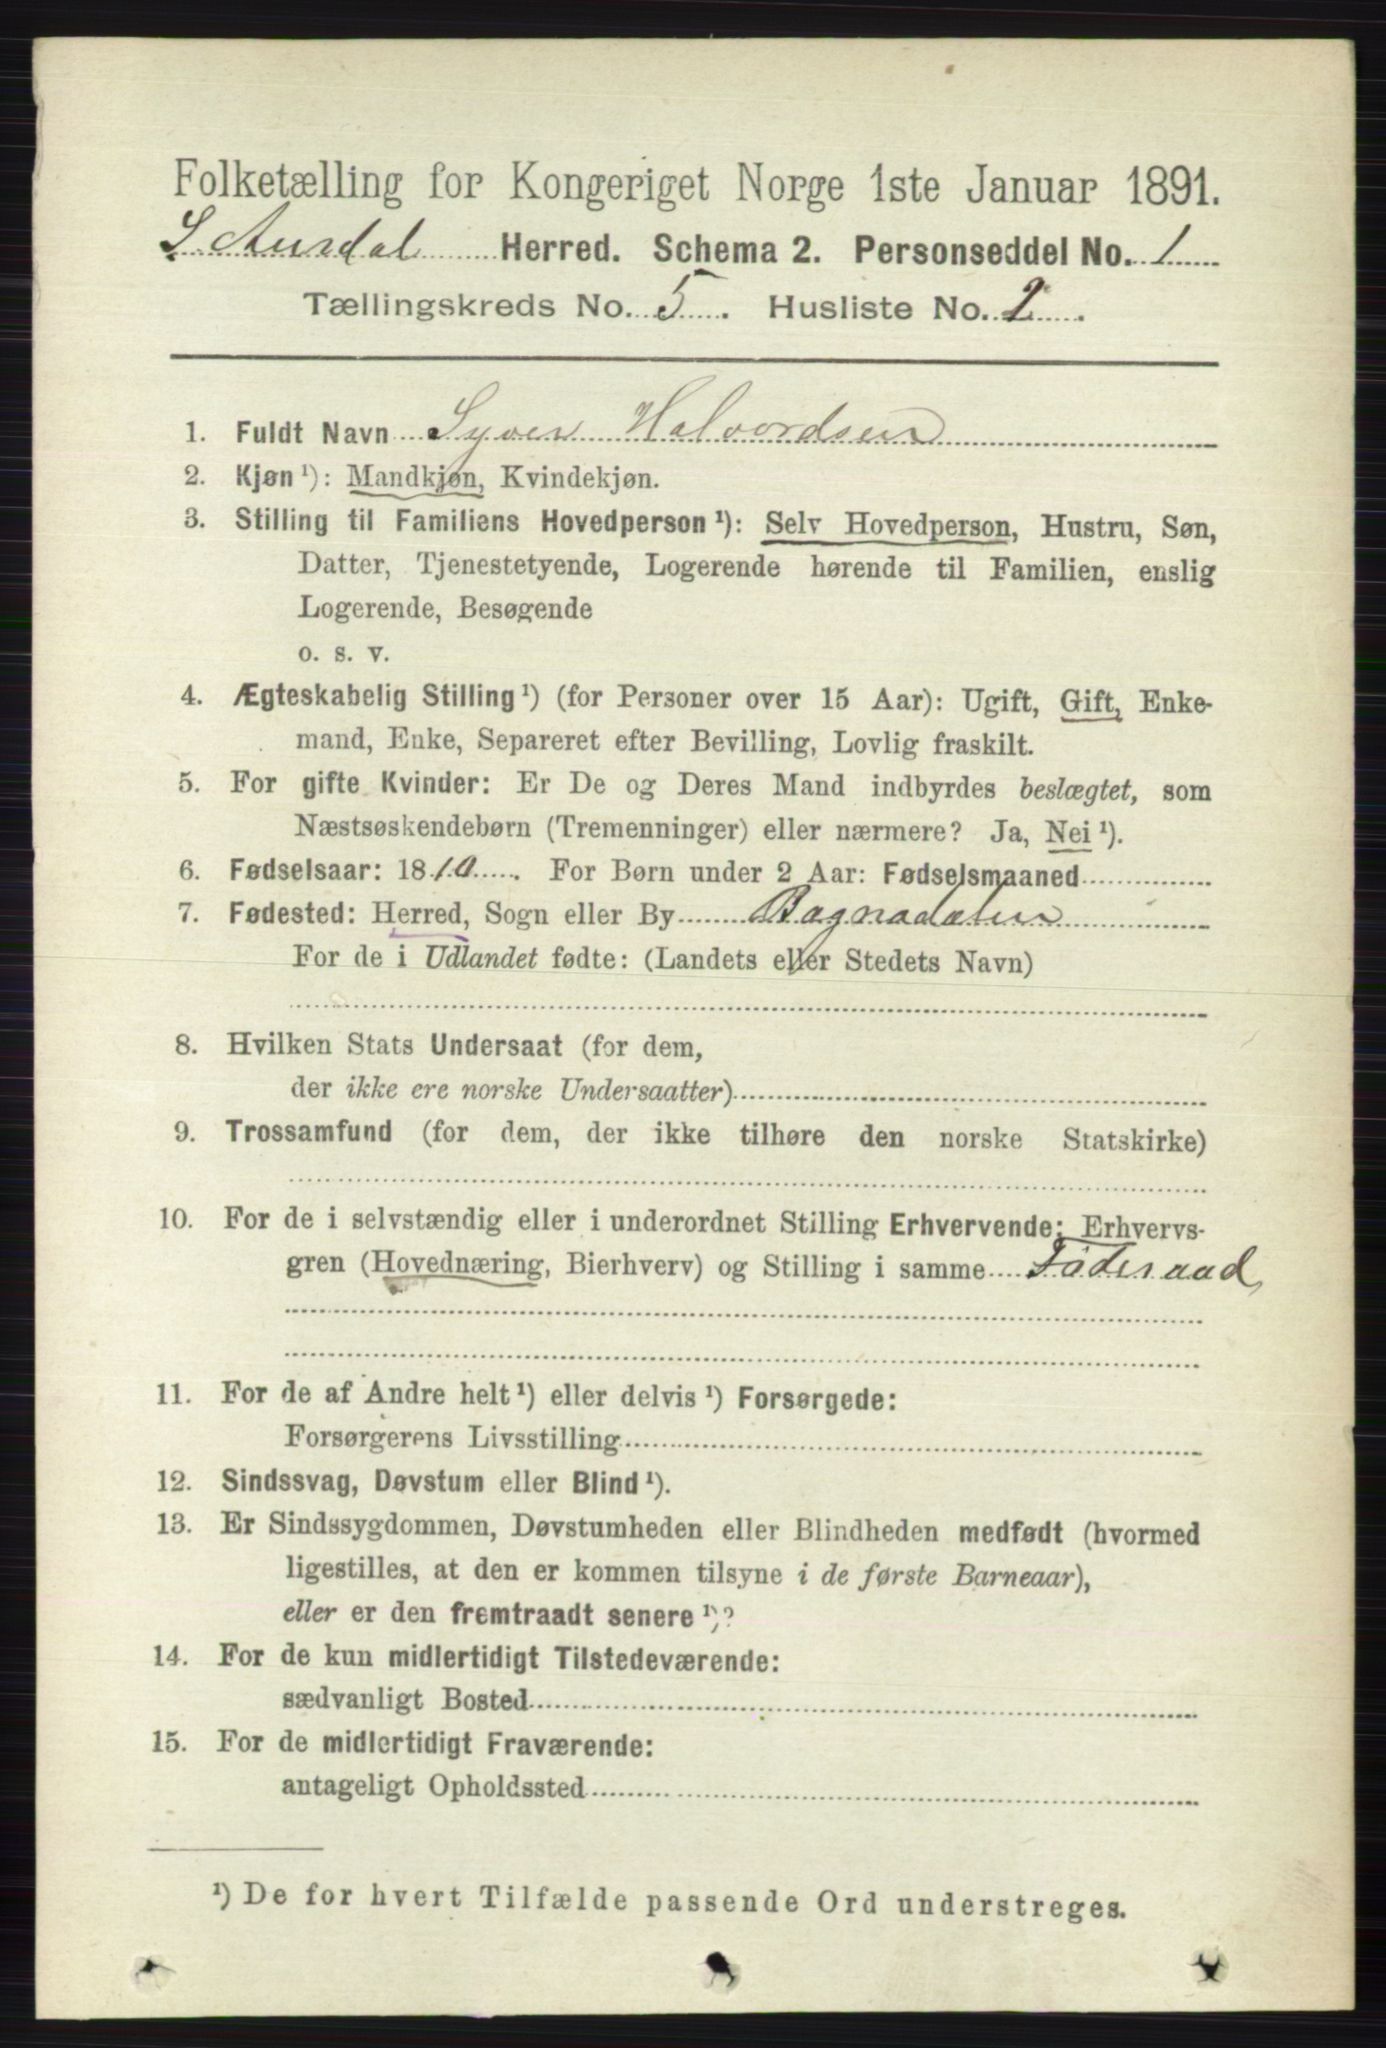 Folketælling for Kongeriget Norge 1ste Januar 1891.
S. Aurdal Herred. Schema 2. Personseddel No. 1
Tællingskreds No. 5. Husliste No. 2.
1. Fuldt Navn Syver Halvordsen
2. Kjøn¹): Mandkjøn, Kvindekjøn.
3. Stilling til Familiens Hovedperson¹): Selv Hovedperson, Hustru, Søn,
Datter, Tjenestetyende, Logerende hørende til Familien, enslig
Logerende, Besøgende
o. s. v.
4. Ægteskabelig Stilling¹) (for Personer over 15 Aar): Ugift, Gift, Enke-
mand, Enke, Separeret efter Bevilling, Lovlig fraskilt.
5. For gifte Kvinder: Er De og Deres Mand indbyrdes beslægtet, som
Næstsøskendebørn (Tremenninger) eller nærmere? Ja, Nei¹).
6. Fødselsaar: 1810. For Børn under 2 Aar: Fødselsmaaned
7. Fødested: Herred, Sogn eller By
For de i Udlandet fødte: (Landets eller Stedets Navn)
8. Hvilken Stats Undersaat (for dem,
der ikke ere norske Undersaatter)
9. Trossamfund (for dem, der ikke tilhøre den norske Statskirke)
10. For de i selvstændig eller i underordnet Stilling Erhvervende: Erhvervs-
gren (Hovednæring, Bierhverv) og Stilling i samme Föderaad
11. For de af Andre helt¹) eller delvis¹) Forsørgede:
Forsørgerens Livsstilling
12. Sindssvag, Døvstum eller Blind¹).
13. Er Sindssygdommen, Døvstumheden eller Blindheden medfødt (hvormed
ligestilles, at den er kommen tilsyne i de første Barneaar),
eller er den fremtraadt senere¹)?
14. For de kun midlertidigt Tilstedeværende:
sædvanligt Bosted
15. For de midlertidigt Fraværende:
antageligt Opholdssted
¹) De for hvert Tilfælde passende Ord understreges.